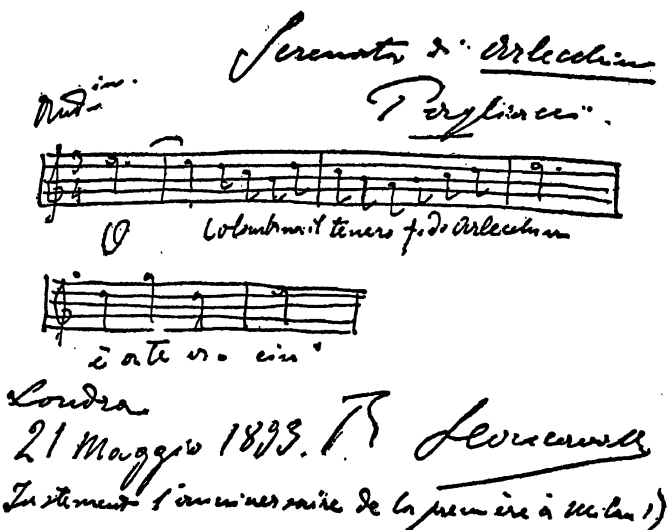 Serenata di Arlecchino
Andino.
Pagliacci.
3 4
O Colombina il tenero fido Arlecchin
è a te vicin
Londra
21 Maggio 1893. R Leoncavallo
Justement l'anniversaire de la première à Milan !)